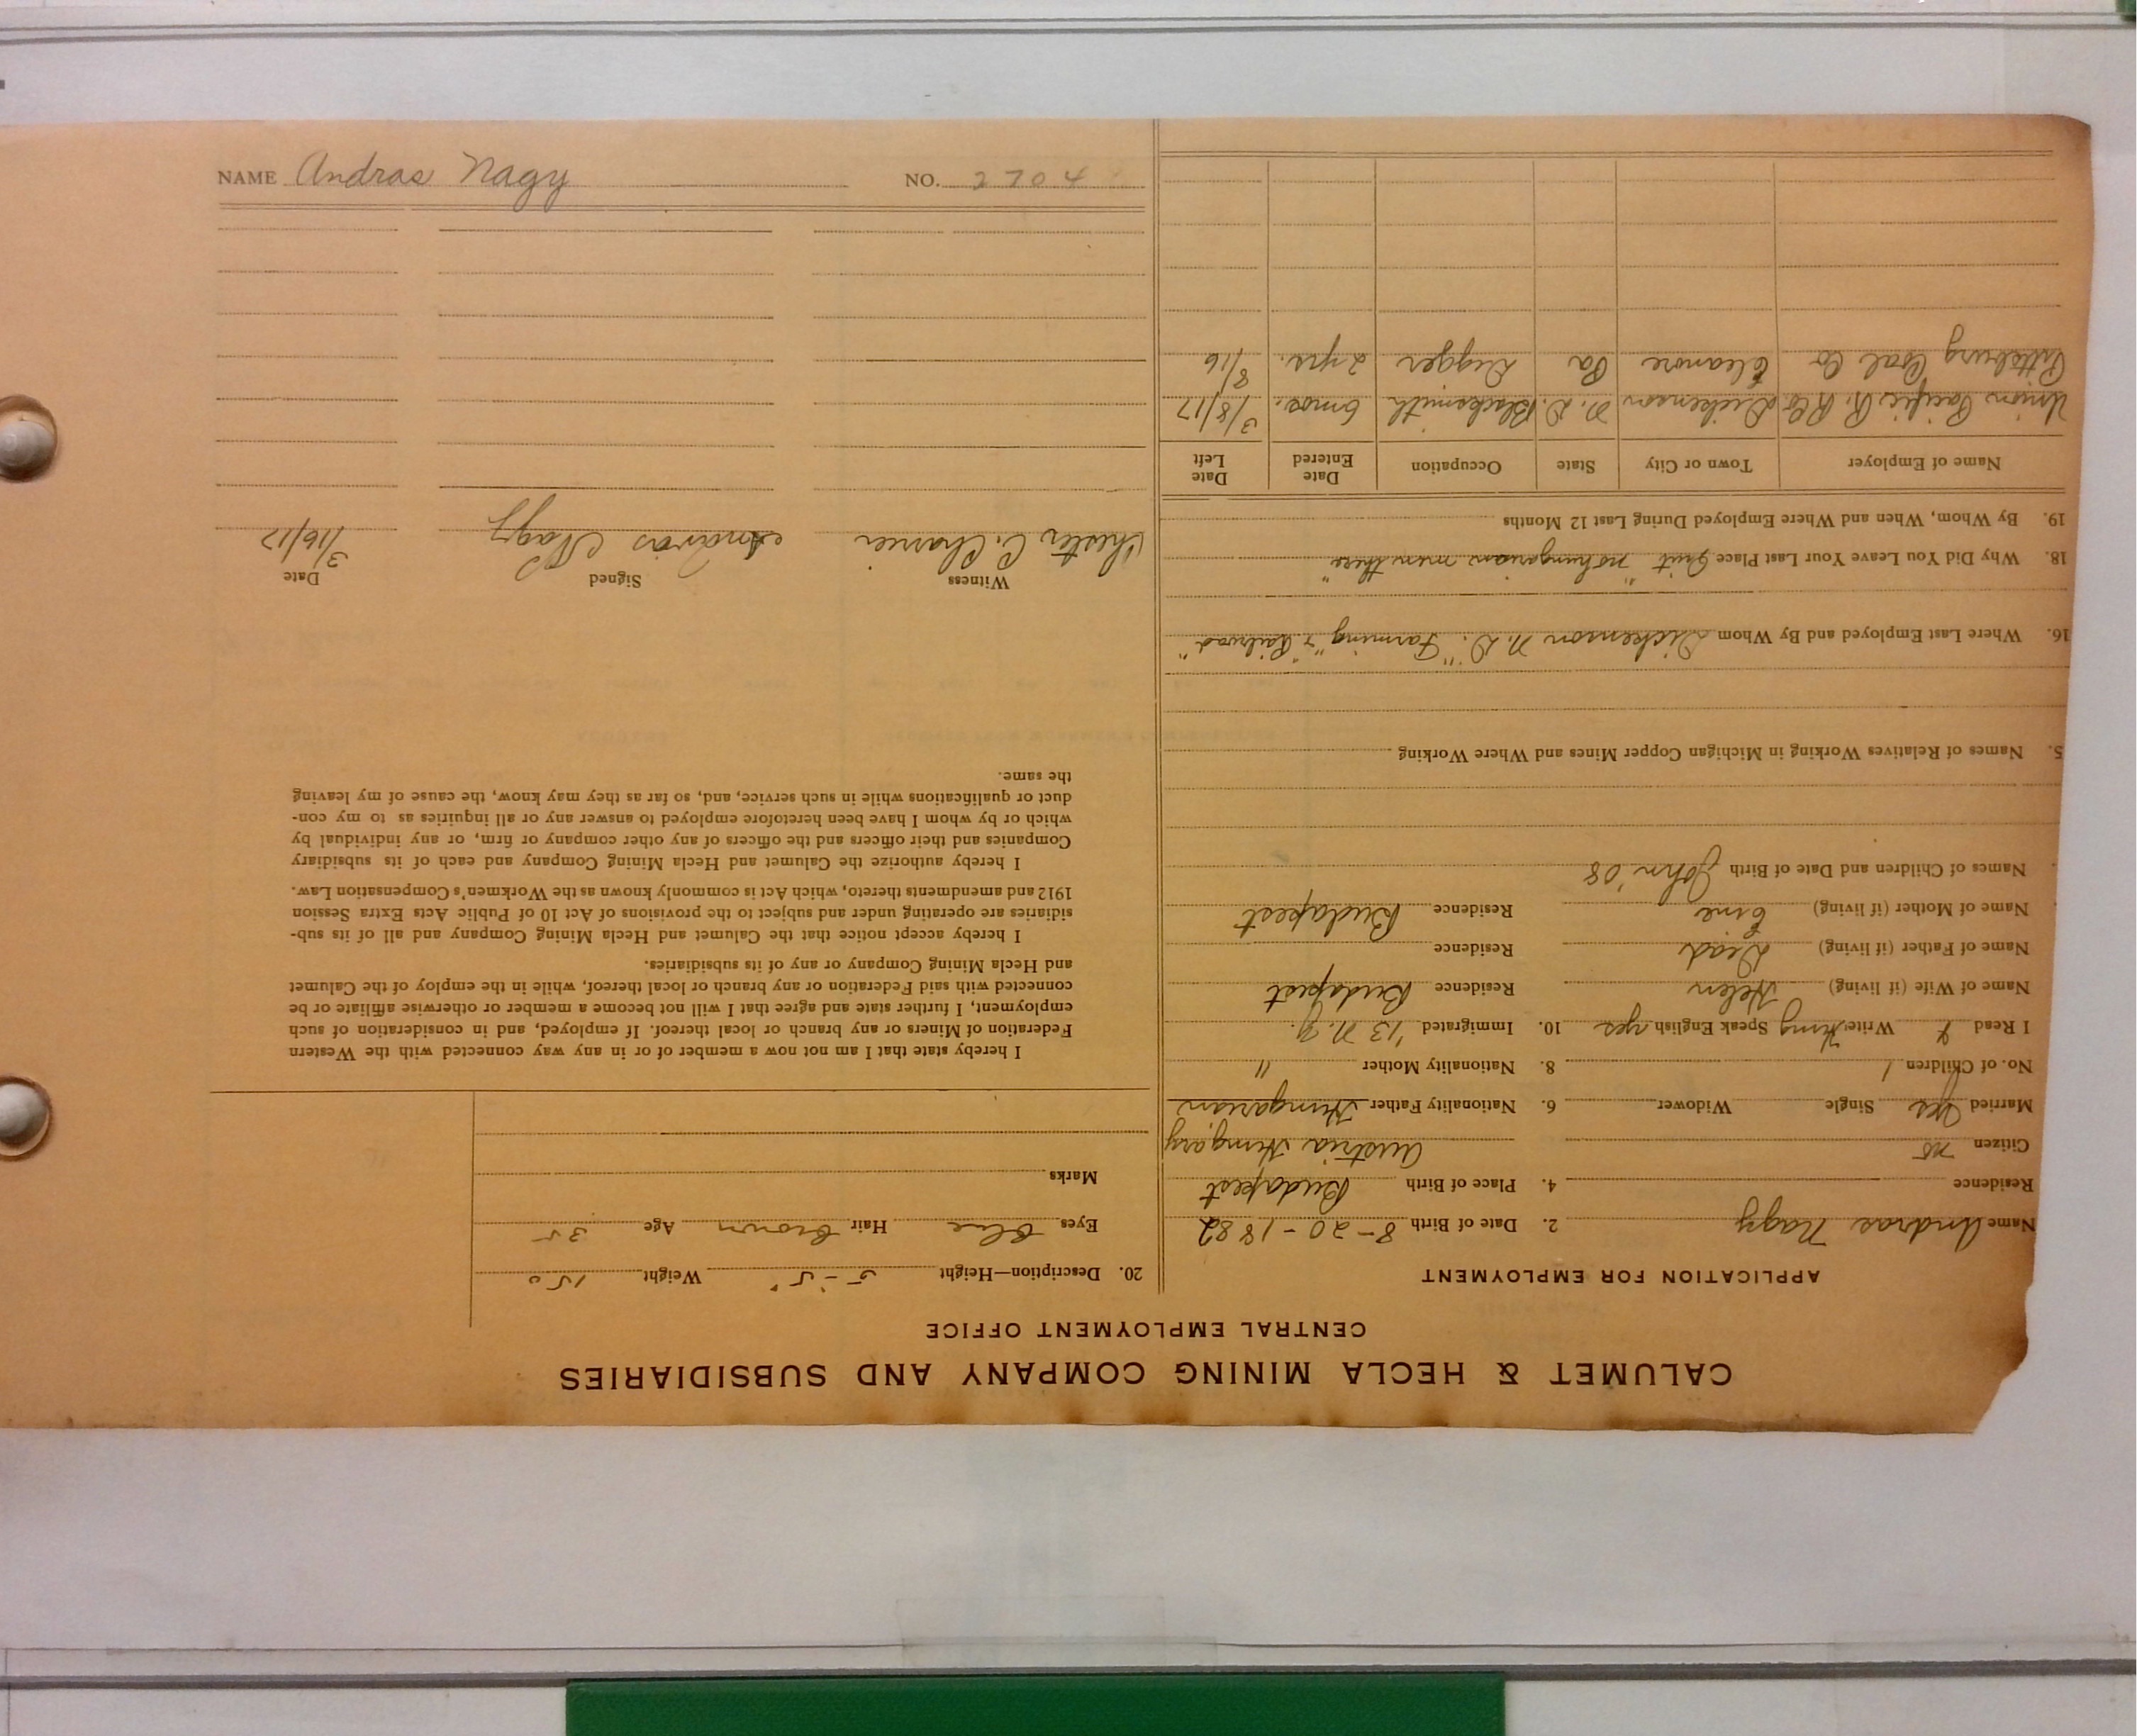 CALUMET & HECLA MINING COMPANY AND SUBSIDIARIES
CENTRAL EMPLOYMENT OFFICE
APPLICATION FOR EMPLOYMENT
Name Andras Nagy 2. Date of Birth 8-20-1882
Residence 4. Place of Birth Budapest
Citizen no Austria Hungary
Married Yes Single Widower 6. Nationality Father Hungarian
No. of Children 1 8. Nationality Mother "
I Read & Write Hung Speak English yes 10. Immigrated '13 N.Y.
Name of Wife (if living) Helen Residence Budapest
Name of Father (if living) Dead Residence
Name of Mother (if living) Residence Budapest
Names of Children and Date of Birth John '08
5. Names of Relatives Working in Michigan Copper Mines and Where Working
16. Where Last Employed and By Whom Dickenson N.D. "Farming" & "Railroad"
18. Why Did You Leave Your Last Place Quit "no hungarian men there"
19. By Whom, When and Where Employed During Last 12 Months
Name of Employer Town or City State Occupation Date Entered Date Left
Union Pacific R. R Co. Dickenson N. D. Blacksmith 6 mos. 3/8/17
Pittsburg Coal Co Eleanore Pa Digger 2 yrs. 8/16
20. Description—Height 5-5" Weight 150
Eyes Blue Hair Brown Age 35
Marks
I hereby state that I am not now a member of or in any way connected with the Western
Federation of Miners or any branch or local thereof. If employed, and in consideration of such
employment, I further state and agree that I will not become a member or otherwise affiliate or be
connected with said Federation or any branch or local thereof, while in the employ of the Calumet
and Hecla Mining Company or any of its subsidiaries.
I hereby accept notice that the Calumet and Hecla Mining Company and all of its sub-
sidiaries are operating under and subject to the provisions of Act 10 of Public Acts Extra Session
1912 and amendments thereto, which Act is commonly known as the Workmen's Compensation Law.
I hereby authorize the Calumet and Hecla Mining Company and each of its subsidiary
Companies and their officers and the officers of any other company or firm, or any individual by
which or by whom I have been heretofore employed to answer any or all inquiries as to my con-
duct or qualifications while in such service, and, so far as they may know, the cause of my leaving
the same.
Witness Signed Date
Chester C. Andras Nagy 3/16/17
NAME Andras Nagy NO. 2704